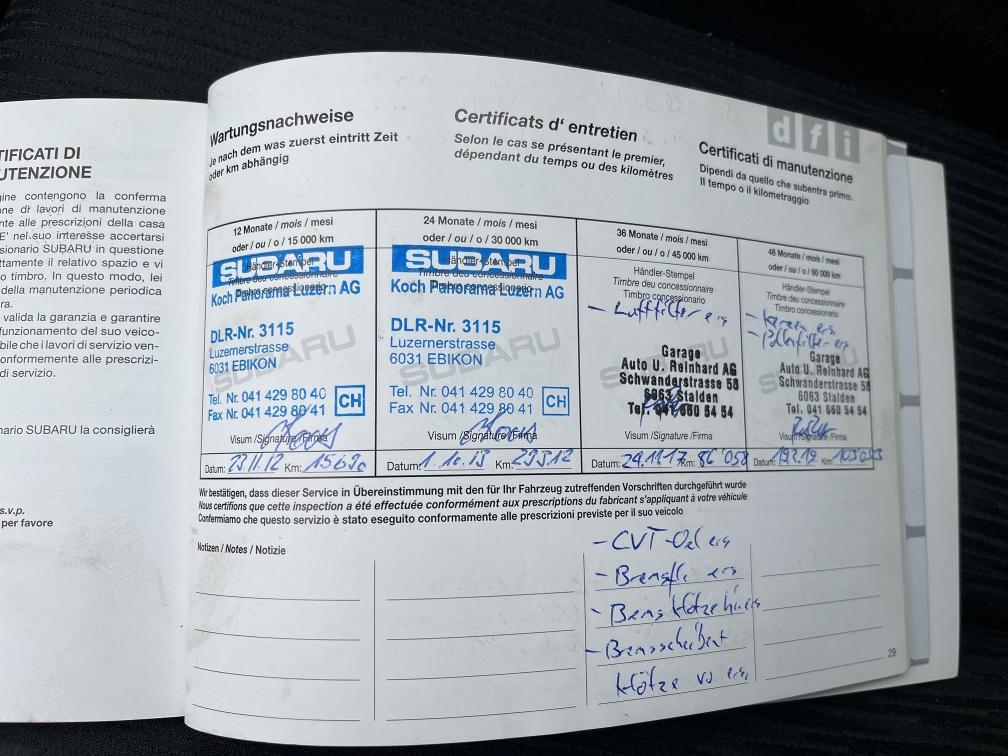 TIFICATI DI
UTENZIONE
gine contengono la conferma
one di lavori di manutenzione
nte alle prescrizioni della casa
E' nel suo interesse accertarsi
sionario SUBARU in questione
ttamente il relativo spazio e vi
o timbro. In questo modo, lei
della manutenzione periodica
ra.
valida la garanzia e garantire
funzionamento del suo veico-
bile che i lavori di servizio ven-
onformemente alle prescrizi-
di servizio.
nario SUBARU la consiglierà
s.v.p.
per favore
Wartungsnachweise
Je nach dem was zuerst eintritt Zeit
oder km abhängig
Certificats d' entretien
Selon le cas se présentant le premier,
dépendant du temps ou des kilomètres
d f i
Certificati di manutenzione
Dipendi da quello che subentra primo.
Il tempo o il kilometraggio
12 Monate / mois / mesi
oder / ou / o / 15 000 km
Händler-Stempel
Timbre deu concessionnaire
Timbro concessionario
SUBARU
Koch Panorama Luzern AG
DLR-Nr. 3115
Luzernerstrasse
6031 EBIKON
SUBARU
Tel. Nr. 041 429 80 40
Fax Nr. 041 429 80 41
CH
Visum /Signature /Firma
Datum: 23.11.12 Km: 15690
24 Monate / mois / mesi
oder / ou / o / 30 000 km
Händler-Stempel
Timbre deu concessionnaire
Timbro concessionario
SUBARU
Koch Panorama Luzern AG
DLR-Nr. 3115
Luzernerstrasse
6031 EBIKON
SUBARU
Tel. Nr. 041 429 80 40
Fax Nr. 041 429 80 41
CH
Visum /Signature /Firma
Datum: 1.10.13 Km: 29312
36 Monate / mois / mesi
oder / ou / o / 45 000 km
Händler-Stempel
Timbre deu concessionnaire
Timbro concessionario
- Luftfilter ers
Garage
Auto U. Reinhard AG
Schwanderstrasse 58
6063 Stalden
Tel. 041 660 54 54
Visum /Signature /Firma
Datum: 24.11.17 Km: 86'058
48 Monate / mois / mesi
oder / ou / o / 60 000 km
Händler-Stempel
Timbre deu concessionnaire
Timbro concessionario
- Kerzen ers
- Pollenfilter ers
Garage
Auto U. Reinhard AG
Schwanderstrasse 58
6063 Stalden
Tel. 041 660 54 54
Visum /Signature /Firma
Datum: Km:
Wir bestätigen, dass dieser Service in Übereinstimmung mit den für Ihr Fahrzeug zutreffenden Vorschriften durchgeführt wurde
Nous certifions que cette inspection a été effectuée conformément aux prescriptions du fabricant s'appliquant à votre véhicule
Confermiamo che questo servizio è stato eseguito conformamente alle prescrizioni previste per il suo veicolo
Notizen / Notes / Notizie
- CVT-Oel ers
- Bremsfl. ers
- Bremsklötze hi ers
- Bremsscheiben +
Klötze vo ers,
29